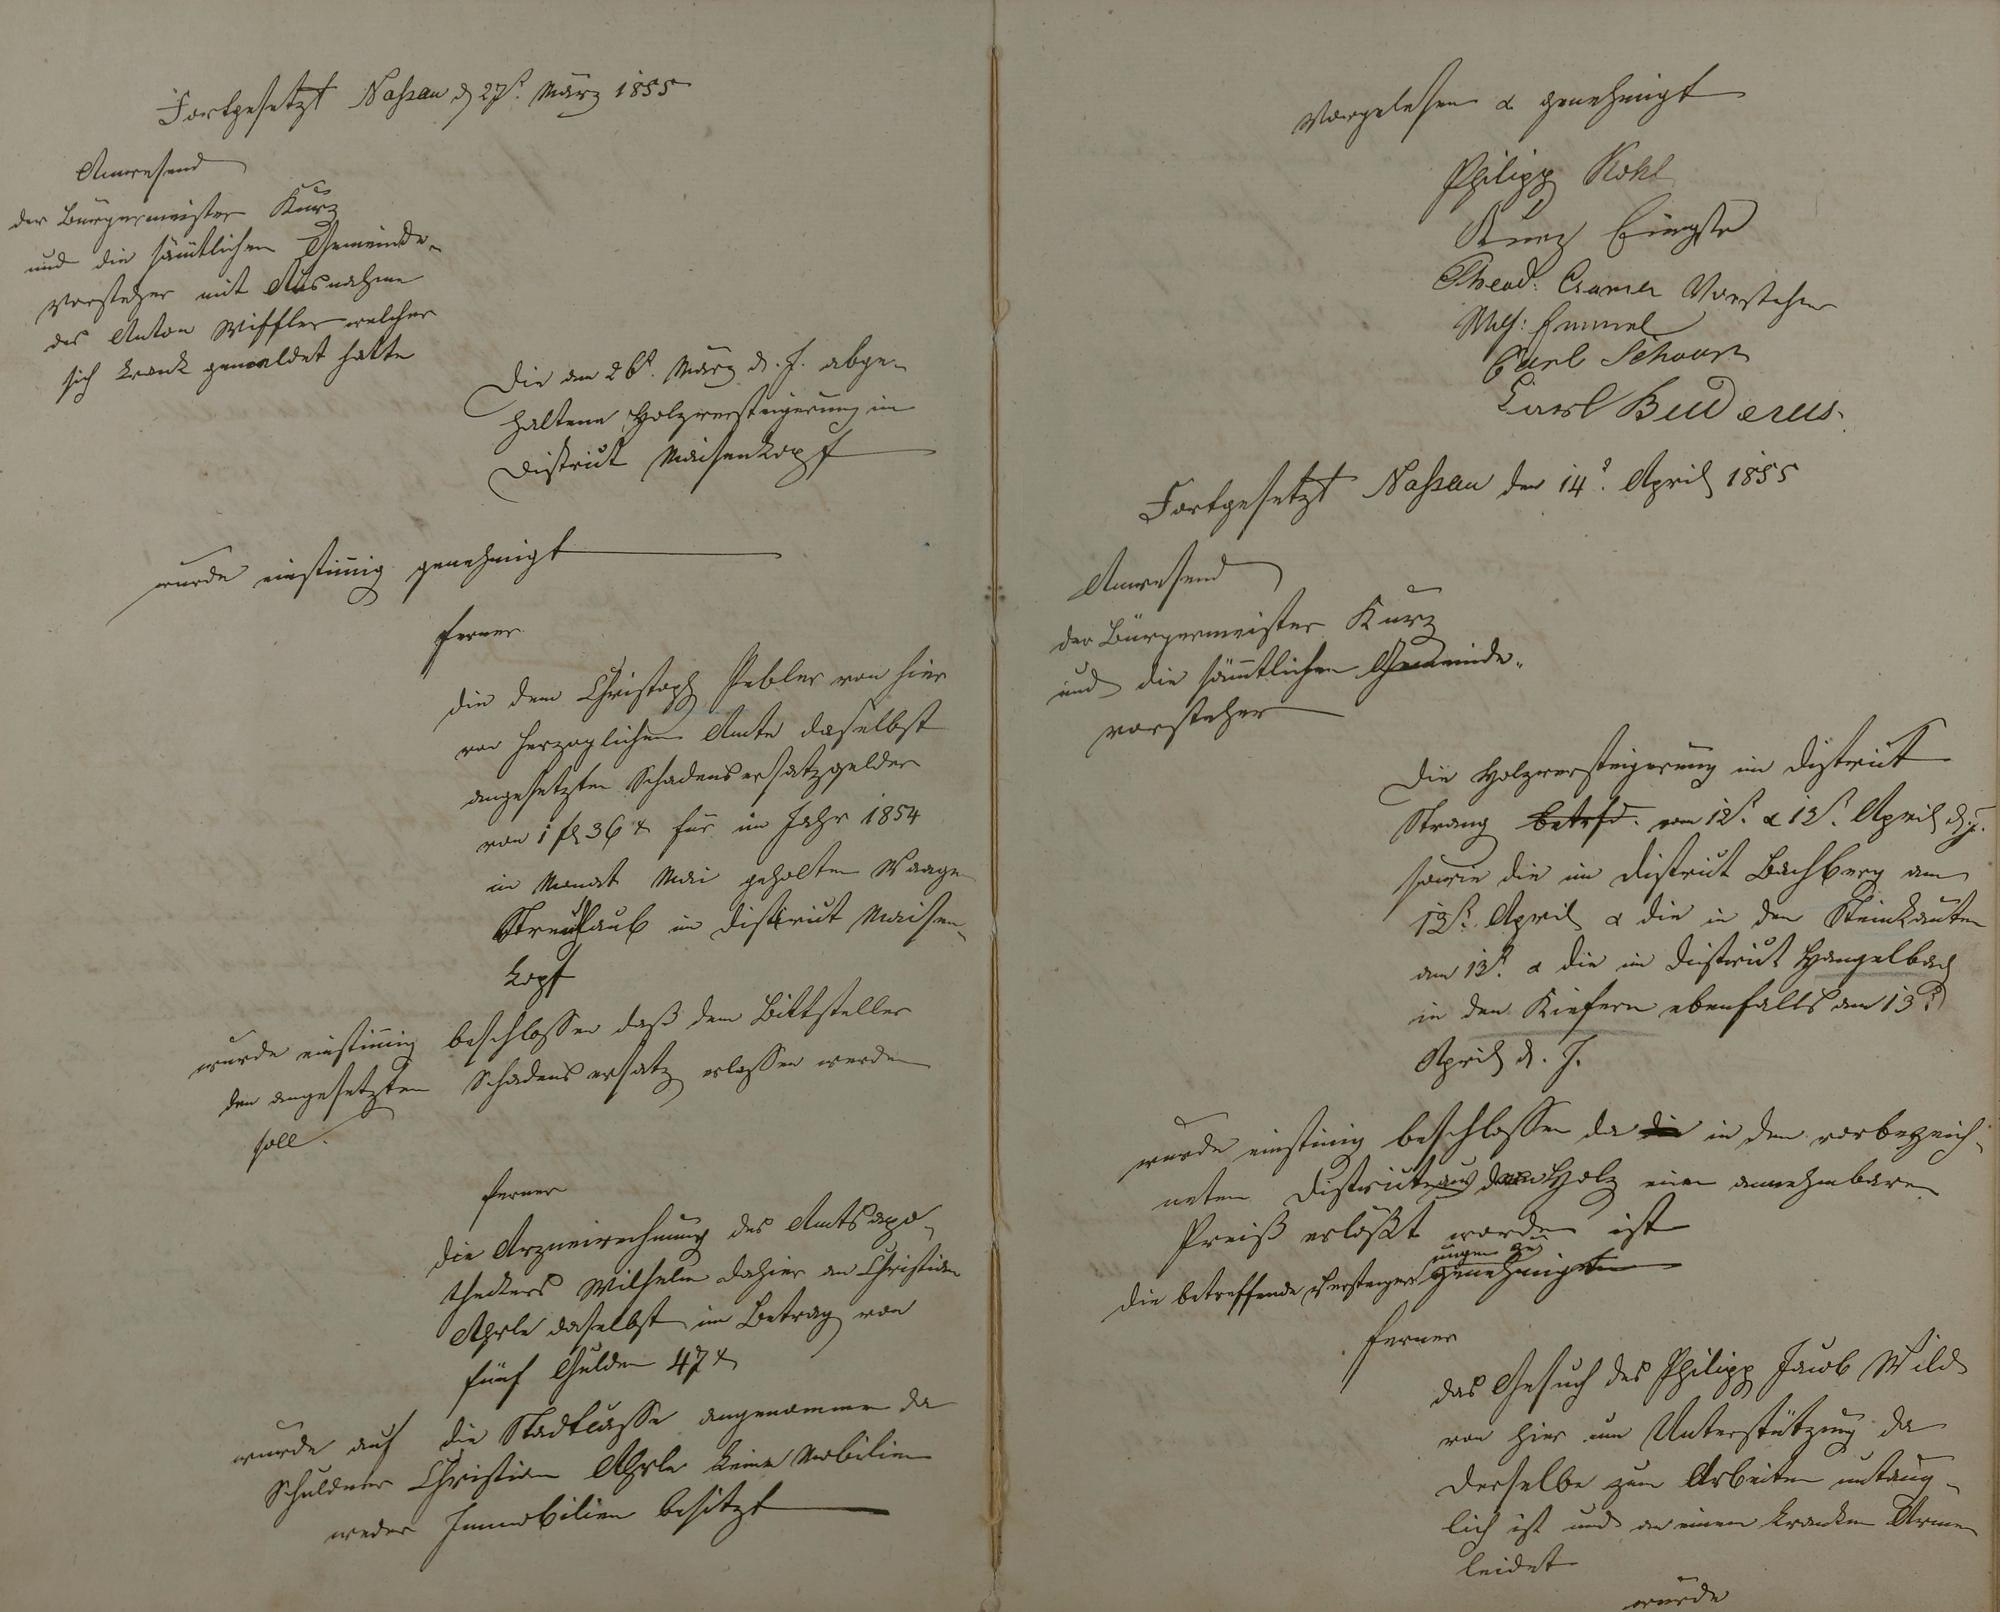 Fortgesetzt Nassau d 27t. März 1855
Anwesend
der Bürgermeister Kurz
und die sämtlichen Gemeinde-
vorsteher mit Ausnahme
des Anton welcher
sich krank gemeldet hatte
Die am 26t. März d. J. abge-
haltene Holzversteigerung im
District Maisenkopf
wurde einstimmig genehmigt
ferner
die dem Christoph von hier
von Herzoglichem Amte daselbst
angesetzten Schadensersatzgelder
von 1 fl 36 x für im Jahr 1854
im Monat Mai geholten Waage
Streulaub im District Maisen-
kopf
wurde einstimmig beschlossen daß dem Bittsteller
den angesetzten Schadensersatz erlassen werden
soll.
ferner
die Arzneirechnung des Amtsapo-
thekers Wilhelm dahier an Christian
daselbst im Betrag von
fünf Gulden 47 x
wurde auf die Stadtcasse angenommen da
Schuldner Christian keine Mobilien
weder Immobilien besitzt
Vorgelesen & genehmigt
Philipp Kohl
Kurz
Theod: Cramer Vorsteher
Carl
Carl Buderus.
Fortgesetzt Nassau den 14t. April 1855
Anwesend
der Bürgermeister Kurz
und die sämmtlichen Gemeinde-
vorsteher
Die Holzversteigerung im District
Strang betrfd. vom 12t. & 13t. April d. J.
sowie die im District Bachberg am
13t. April & die in den Steinkauten
am 13t. & die im District Hangelbach
in den Kiefern ebenfalls am 13t
April d. J.
wurde einstimig beschlossen da die in den vorbezeich-
neten District aus dem Holz einen annehmbaren
Preiß erlößt worden ist
die betreffende Versteigerungen zu genehmigten
ferner
das Gesuch des Philipp Jacob Wild
von hier um Unterstützung da
derselbe zum Arbeiten untaug-
lich ist und an einem kranken Arme
leidet
wurde